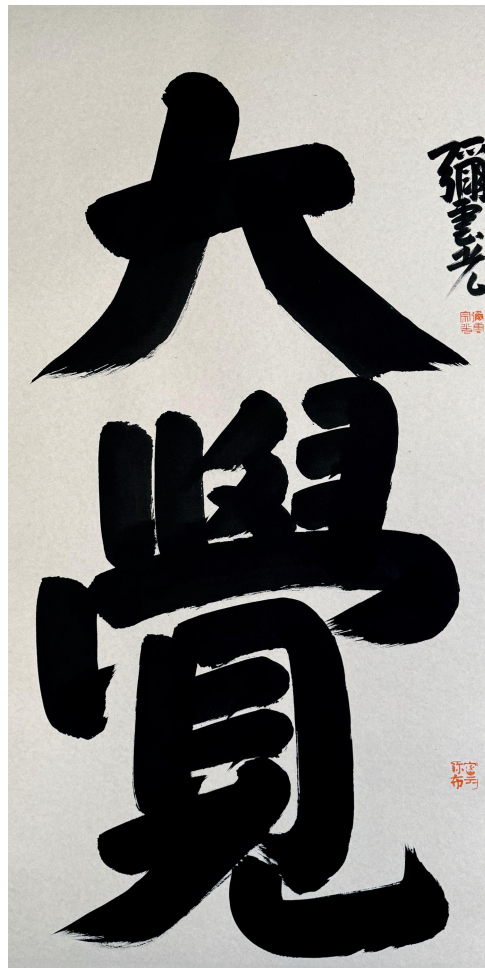 大覺
彌雲光